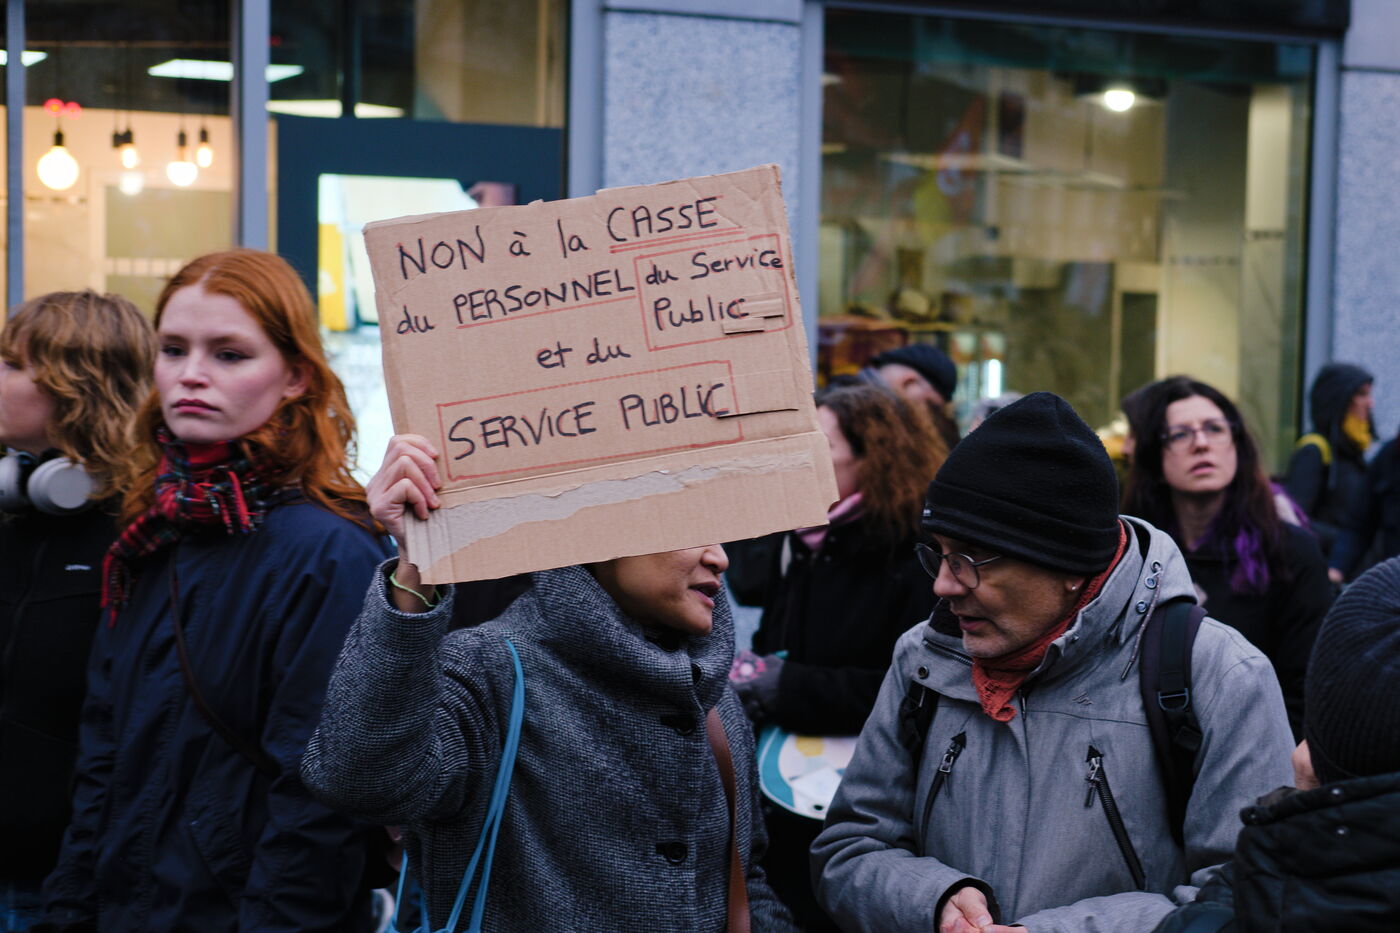 NON à la CASSE
du PERSONNEL du Service
Public
et du
SERVICE PUBLIC